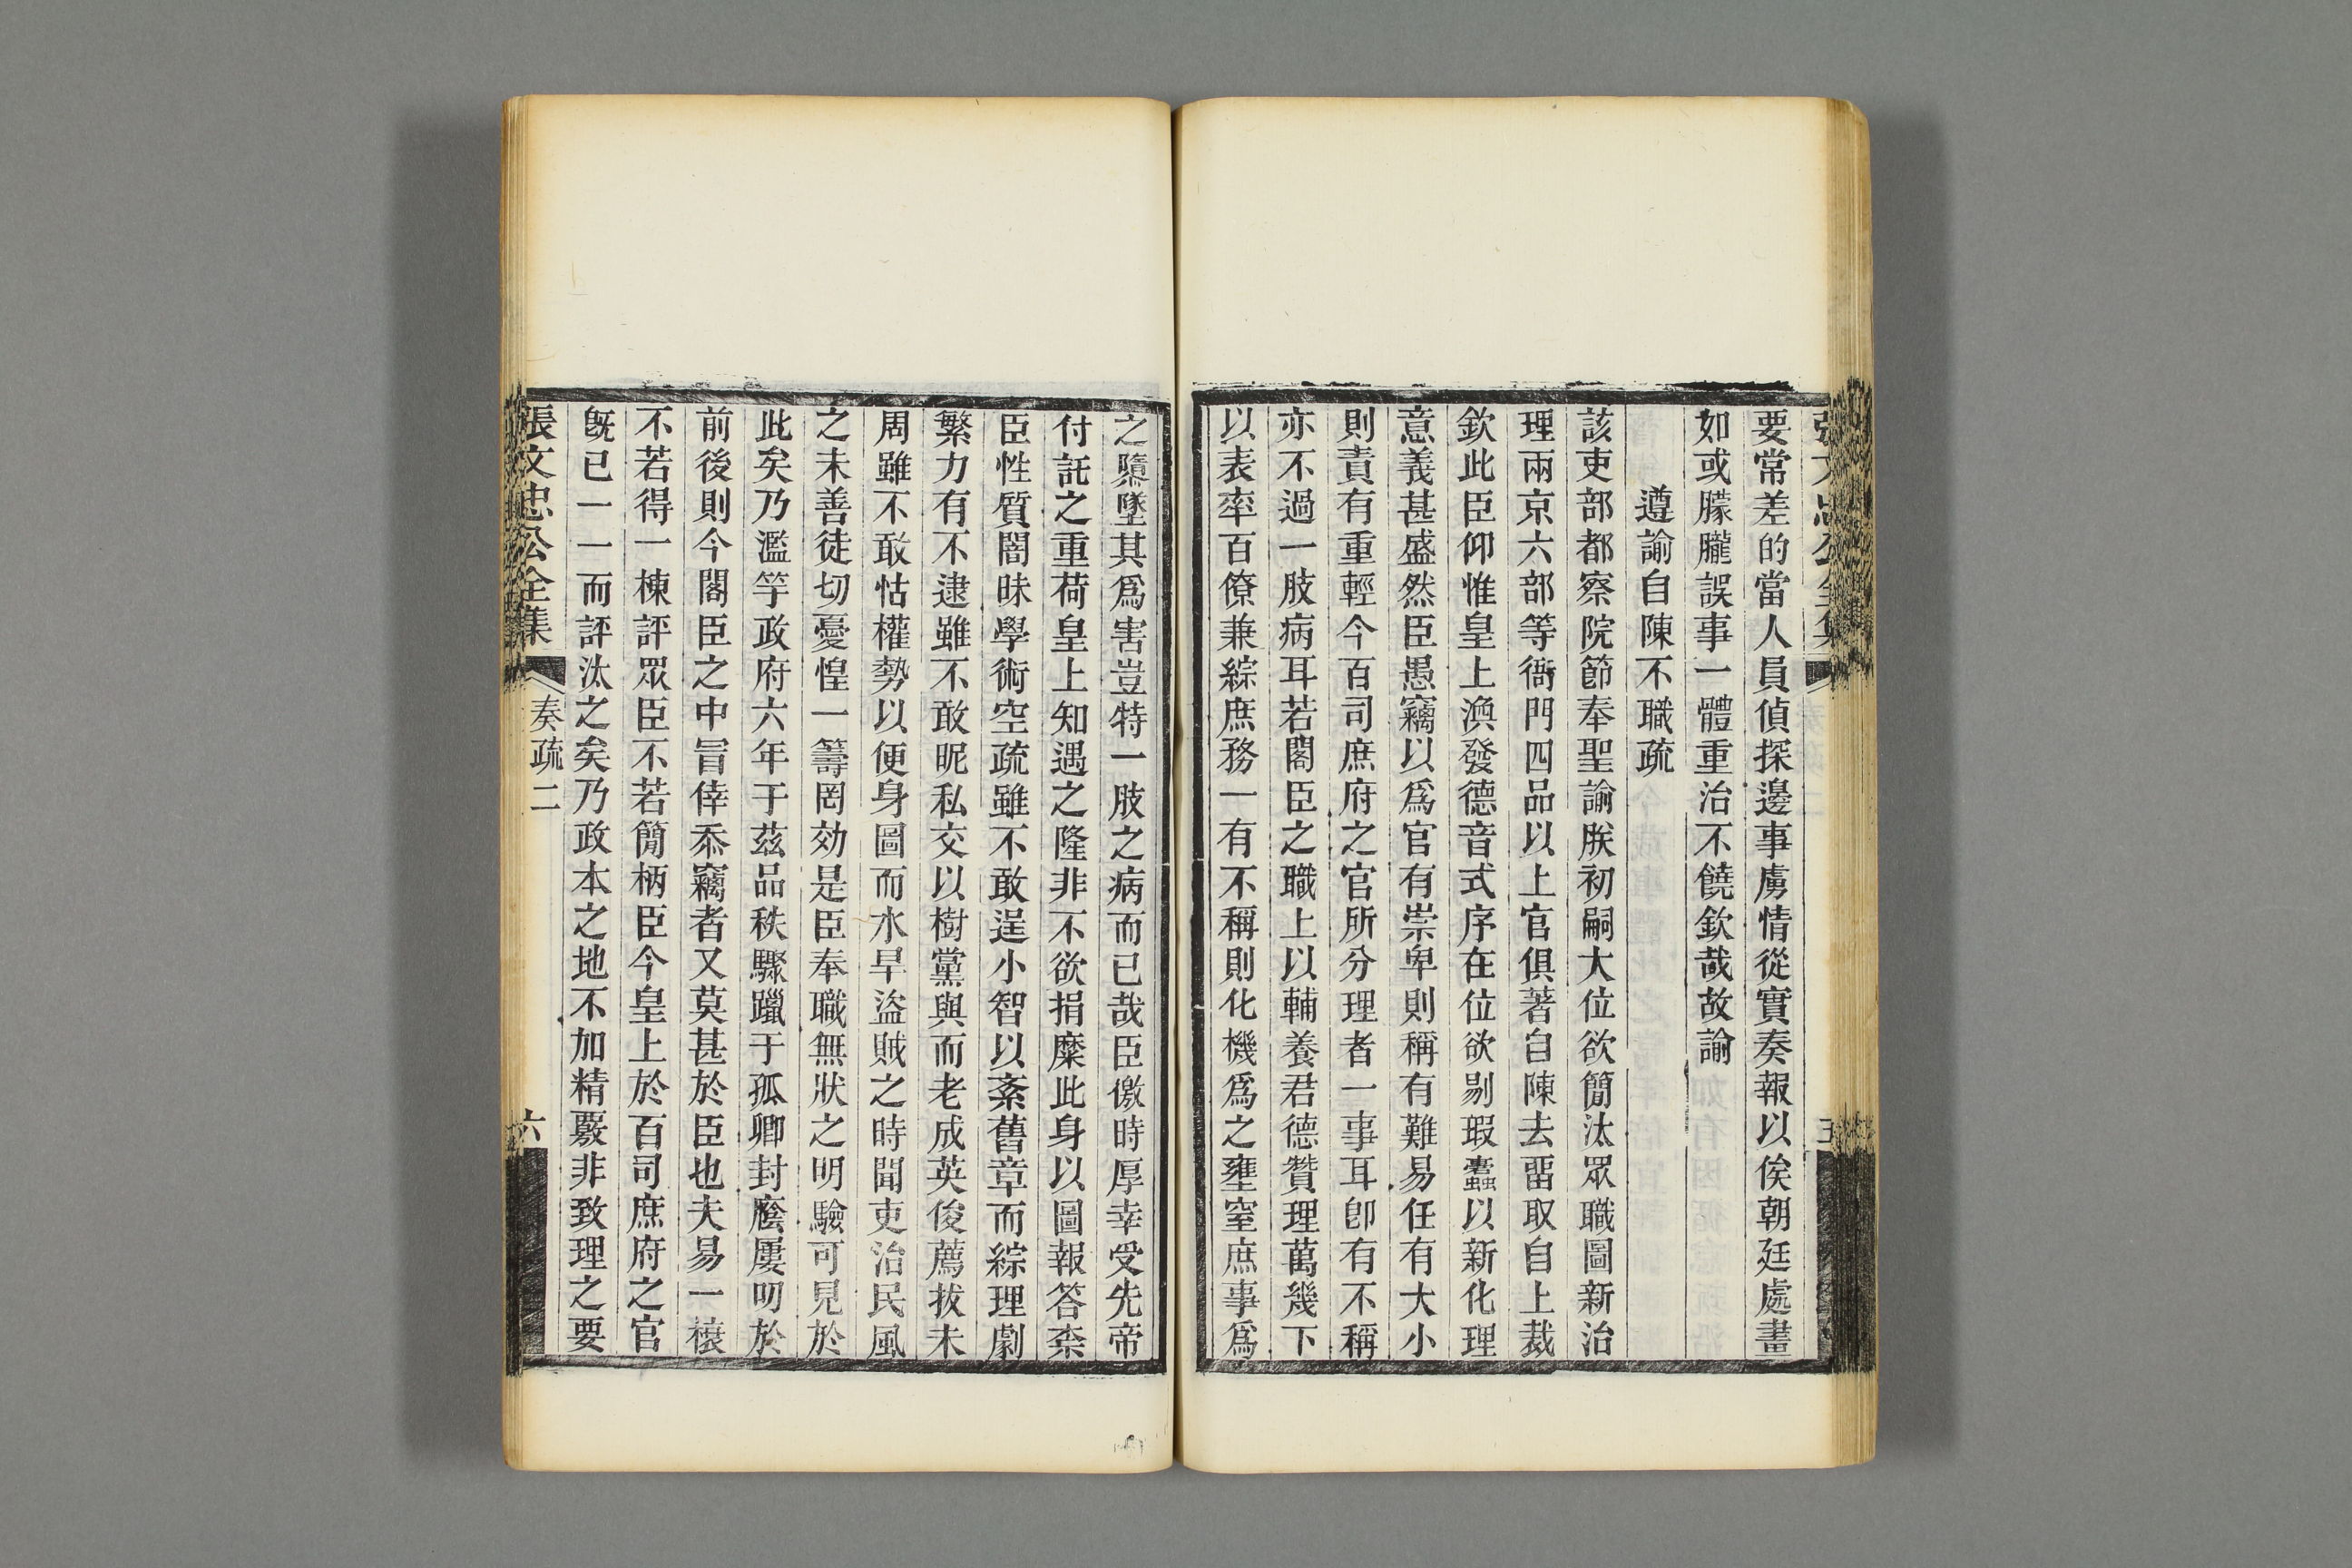 要常差的當人員偵探邊事虜情從實奏報以俟朝廷處畫
如或朦朧誤事一體重治不饒欽哉故諭
遵諭自陳不職疏
該吏部都察院節奉聖諭朕初嗣大位欲簡汰眾職圖新治
理兩京六部等衙門四品以上官俱著自陳去畱取自上裁
欽此臣仰惟皇上渙發德音式序在位欲剔瑕蠹以新化理
意義甚盛然臣愚竊以爲官有崇卑則稱有難易任有大小
則責有重輕今百司庶府之官所分理者一事耳卽有不稱
亦不過一肢病耳若閣臣之職上以輔養君德贊理萬幾下
以表率百僚兼綜庶務一有不稱則化機爲之壅窒庶事爲
之隳墜其爲害豈特一肢之病而已哉臣儌時厚幸受先帝
付託之重荷皇上知遇之隆非不欲捐糜此身以圖報答柰
臣性質闇昧學術空疏雖不敢逞小智以紊舊章而綜理劇
繁力有不逮雖不敢昵私交以樹黨與而老成英俊薦拔未
周雖不敢怙權勢以便身圖而水旱盜賊之時聞吏治民風
之未善徒切憂惶一籌罔効是臣奉職無狀之明驗可見於
此矣乃濫竽政府六年于茲品秩驟躐于孤卿封廕屢叨於
前後則今閣臣之中冒倖忝竊者又莫甚於臣也夫易一榱
不若得一棟評眾臣不若簡柄臣今皇上於百司庶府之官
旣已一一而評汰之矣乃政本之地不加精覈非致理之要
張文忠公全集
奏疏二
六